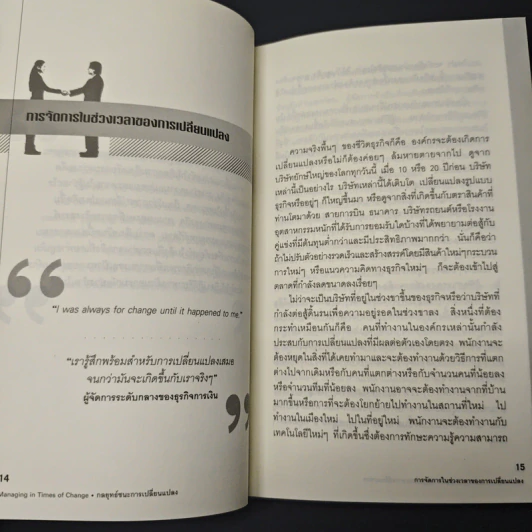 การจัดการในช่วงเวลาของการเปลี่ยนแปลง
“I was always for change until it happened to me.”
“เรารู้สึกพร้อมสำหรับการเปลี่ยนแปลงเสมอ
จนกว่ามันจะเกิดขึ้นกับเราจริงๆ”
ผู้จัดการระดับกลางของธุรกิจการเงิน
14
Managing in Times of Change • กลยุทธ์ชนะการเปลี่ยนแปลง
ความจริงพื้นๆ ของชีวิตธุรกิจก็คือ องค์กรจะต้องเกิดการ
เปลี่ยนแปลงหรือไม่ก็ต้องค่อยๆ ล้มหายตายจากไป ดูจาก
บริษัทยักษ์ใหญ่ของโลกทุกวันนี้ เมื่อ 10 หรือ 20 ปีก่อน บริษัท
เหล่านี้เป็นอย่างไร บริษัทเหล่านี้ได้เติบโต เปลี่ยนแปลงรูปแบบ
ธุรกิจหรืออยู่ๆ ก็ใหญ่ขึ้นมา หรือดูจากสิ่งที่เกิดขึ้นกับตราสินค้าที่
ท่านโตมาด้วย สายการบิน ธนาคาร บริษัทรถยนต์หรือโรงงาน
อุตสาหกรรมหนักที่ได้รับการยอมรับใดบ้างที่ได้พยายามต่อสู้กับ
คู่แข่งที่มีต้นทุนต่ำกว่าและมีประสิทธิภาพมากกว่า นั่นก็คือว่า
ถ้าไม่ปรับตัวอย่างรวดเร็วและสร้างสรรค์โดยมีสินค้าใหม่ๆกระบวน
การใหม่ๆ หรือแนวความคิดทางธุรกิจใหม่ๆ ก็จะต้องเข้าไปสู่
ตลาดที่กำลังลดขนาดลงเรื่อยๆ
ไม่ว่าจะเป็นบริษัทที่อยู่ในช่วงขาขึ้นของธุรกิจหรือว่าบริษัทที่
กำลังต่อสู้ดิ้นรนเพื่อความอยู่รอดในช่วงขาลง สิ่งหนึ่งที่ต้อง
กระทำเหมือนกันก็คือ คนที่ทำงานในองค์กรเหล่านั้นกำลัง
ประสบกับการเปลี่ยนแปลงที่มีผลต่อตัวเองโดยตรง พนักงานจะ
ต้องหยุดในสิ่งที่ได้เคยทำมาและจะต้องทำงานด้วยวิธีการที่แตก
ต่างไปจากเดิมหรือกับคนที่แตกต่างหรือกับจำนวนคนที่น้อยลง
หรือจำนวนทีมที่น้อยลง พนักงานอาจจะต้องทำงานจากที่บ้าน
มากขึ้นหรือการที่จะต้องโยกย้ายไปทำงานในสถานที่ใหม่ ไป
ทำงานในเมืองใหม่ ไปในที่อยู่ใหม่ พนักงานจะต้องทำงานกับ
เทคโนโลยีใหม่ๆ ที่เกิดขึ้นซึ่งต้องการทักษะความรู้ความสามารถ
15
การจัดการในช่วงเวลาของการเปลี่ยนแปลง